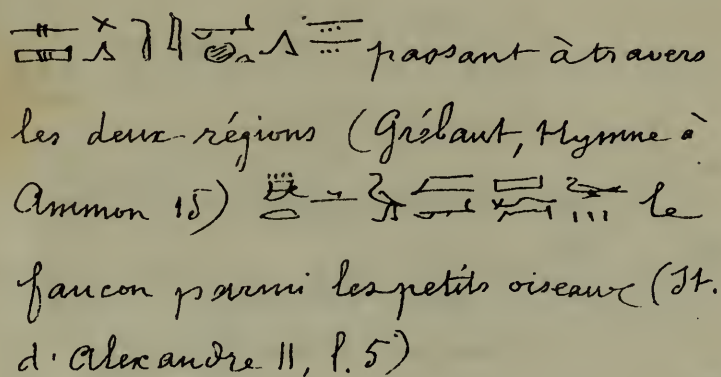 passant à travers
les deux régions (Grébaut, Hymne à
Ammon 15) le
faucon parmi les petits oiseaux (St.
d'Alexandre II, l. 5)